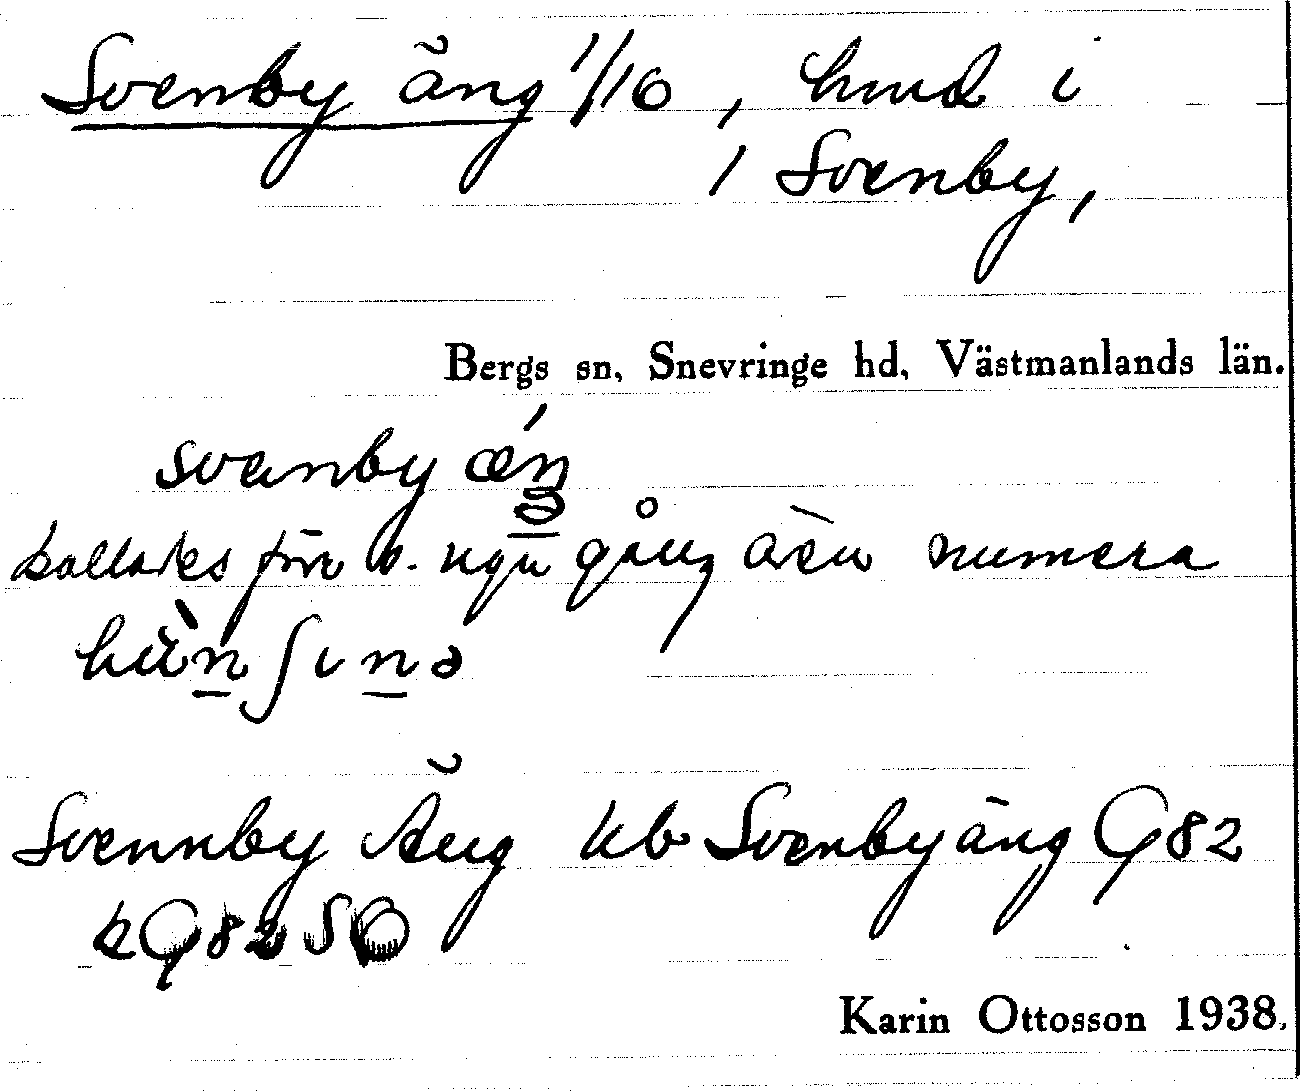 Svenby äng 1/16, hmd i
/ Svenby,
Bergs sn, Snevringe hd, Västmanlands län.
svanby æŋ́
kallades förr o. ngn gång även numera
Svennby Äng kb Svenbyäng G82
kG82 SO
Karin Ottosson 1938.